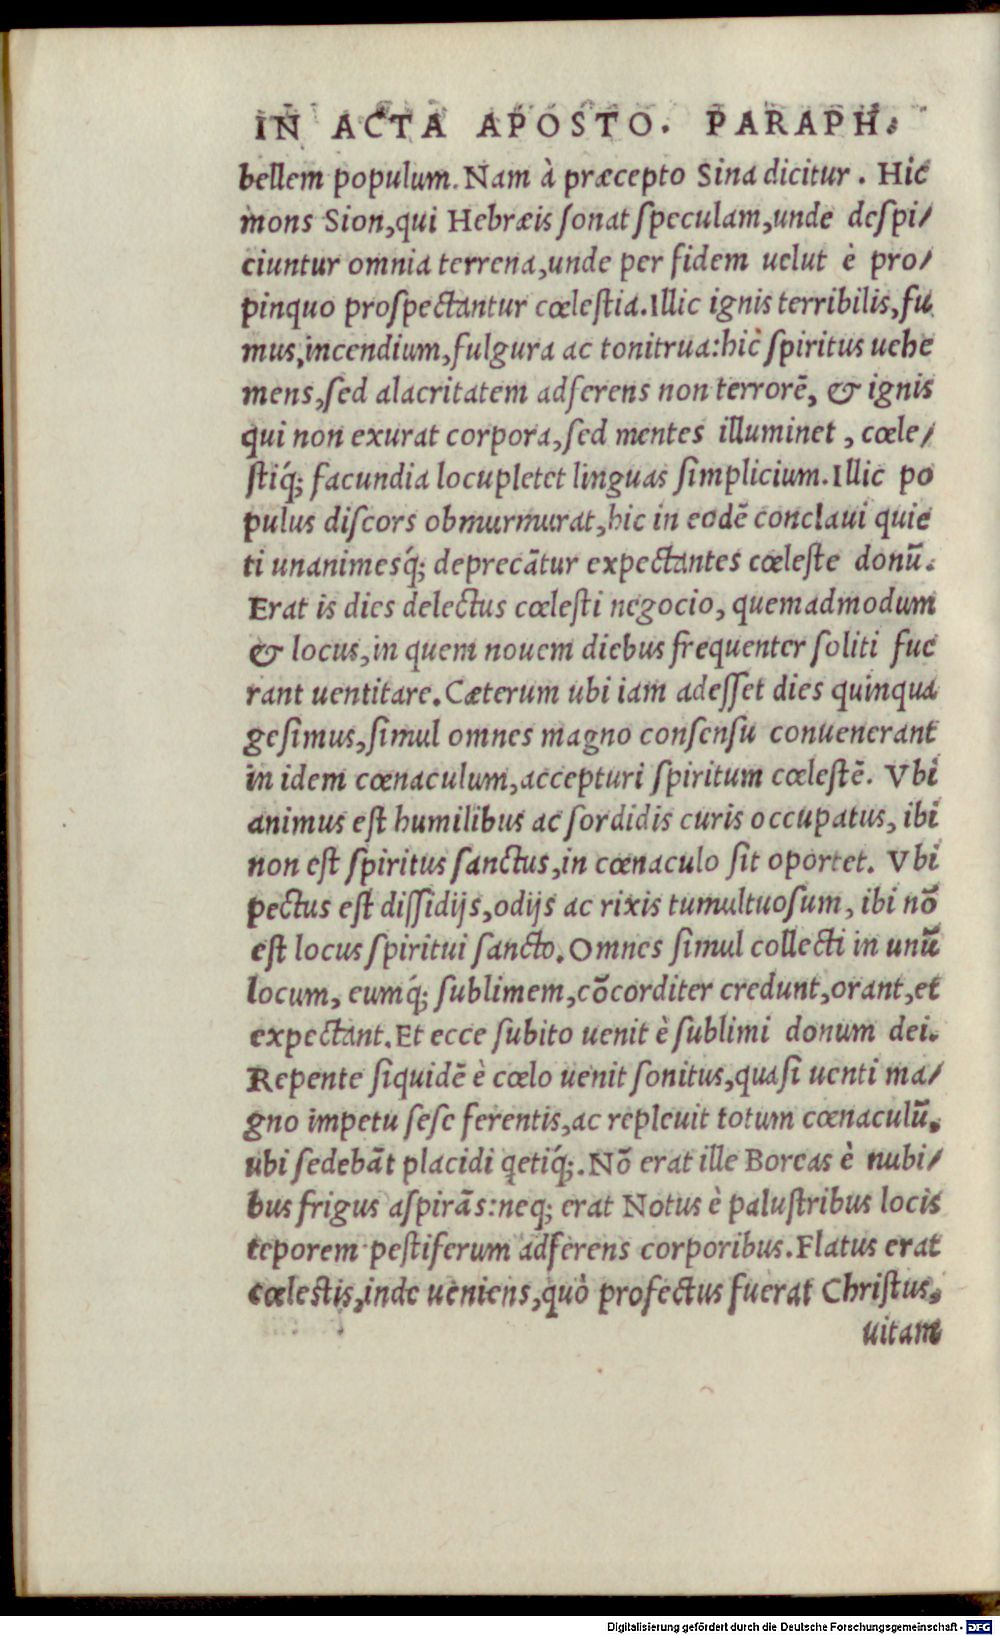 IN ACTA APOSTO. PARAPH.
bellem populum. Nam à præcepto Sina dicitur. Hic
mons Sion, qui Hebræis ſonat ſpeculam, unde deſpi/
ciuntur omnia terrena, unde per fidem uelut è pro/
pinquo proſpectantur cœleſtia. Illic ignis terribilis, fu
mus, incendium, fulgura ac tonitrua: hic ſpiritus uehe
mens, ſed alacritatem adferens non terrorē, & ignis
qui non exurat corpora, ſed mentes illuminet, cœle/
ſtiq́; facundia locupletet linguas ſimplicium. Illic po
pulus diſcors obmurmurat, hic in eodē conclaui quie
ti unanimesq́; deprecātur expectantes cœleſte donū.
Erat is dies delectus cœleſti negocio, quemadmodum
& locus, in quem nouem diebus frequenter ſoliti fue
rant uentitare. Cæterum ubi iam adeſſet dies quinqua
geſimus, ſimul omnes magno conſenſu conuenerant
in idem cœnaculum, accepturi ſpiritum cœleſtē. Vbi
animus eſt humilibus ac ſordidis curis occupatus, ibi
non eſt ſpiritus ſanctus, in cœnaculo ſit oportet. Vbi
pectus eſt diſſidijs, odijs ac rixis tumultuoſum, ibi nō
eſt locus ſpiritui ſancto. Omnes ſimul collecti in unū
locum, eumq́; ſublimem, cōcorditer credunt, orant, et
expectant. Et ecce ſubito uenit è ſublimi donum dei.
Repente ſiquidē è cœlo uenit ſonitus, quaſi uenti ma/
gno impetu ſeſe ferentis, ac repleuit totum cœnaculū,
ubi ſedebāt placidi q̨etiq́;. Nō erat ille Boreas è nubi/
bus frigus aſpirās: neq; erat Notus è paluſtribus locis
teporem peſtiferum adferens corporibus. Flatus erat
cœlestis, inde ueniens, quò profectus fuerat Chriſtus,
uitam
Digitalisierung gefördert durch die Deutsche Forschungsgemeinschaft - DFG